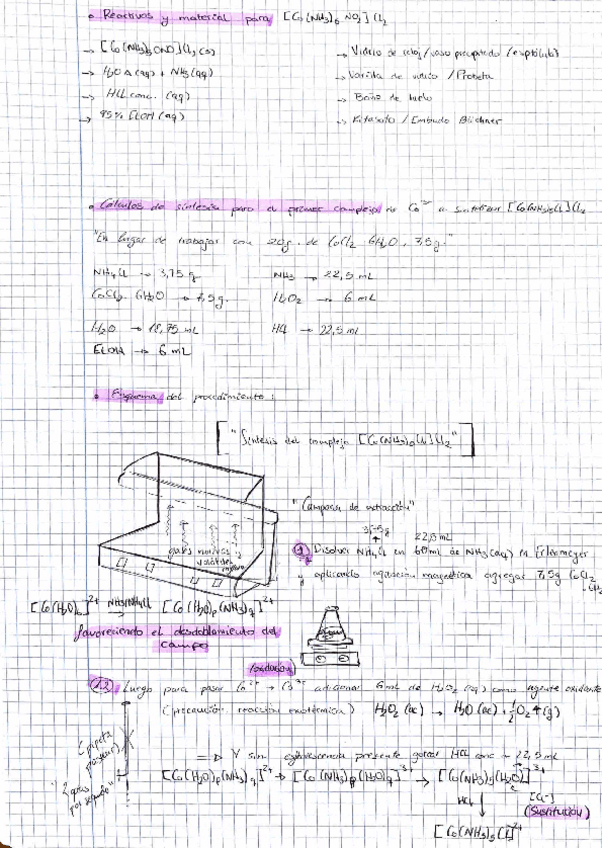 • Reactivos y material para [Co(NH3)6 NO2]Cl2
→ [Co(NH3)5ONO]Cl2 (s)
→ H2O Δ (aq) + NH3 (aq)
→ HCl conc. (aq)
→ 95% EtOH (aq)
→ Vidrio de reloj/vaso precipitado /
→ Varilla de vidrio / Probeta
→ Baño de hielo
→ Kitasato / Embudo Büchner
• Cálculos de síntesis para el primer complejo de Co3+ a sintetizar [Co(NH3)5Cl]Cl2
"En lugar de trabajar con 20g. de CoCl2 · 6H2O, 7,5g."
NH4Cl → 3,75 g
NH3 → 22,5 mL
CoCl2 · 6H2O → 7,5g.
H2O2 → 6 mL
H2O → 18,75 mL
HCl → 22,5 mL
EtOH → 6 mL
• Esquema del procedimiento:
["Síntesis del complejo [Co(NH3)5Cl]Cl2"]
"Campana de extracción"
gases nocivos
volátiles
22,5 mL
① Disolver NH4Cl en 60mL de NH3(aq) en Erlenmeyer
y aplicando agitación magnética agregar 7,5g CoCl2
[Co(H2O)6]2+ NH3/NH4Cl → [Co(H2O)p(NH3)q]2+
favoreciendo el desdoblamiento del
campo
(oxidación)
1.2 Luego para pasar Co2+ → Co3+ adicionar 6mL de H2O2 (aq) como agente oxidante
(precaución: reacción exotérmica) H2O2 (ac) → H2O (ac) + ½O2↑(g)
(pipeta pasteur)
"2 gotas por segundo"
⇒ Y sin efervescencia presente gotear HCl conc → 22,5 mL
[Co(H2O)p(NH3)q]2+ → [Co(NH3)p(H2O)q]3+ → [Co(NH3)5(H2O)]3+
HCl ↓ [Cl-]
(Sustitución)
[Co(NH3)5Cl]2+